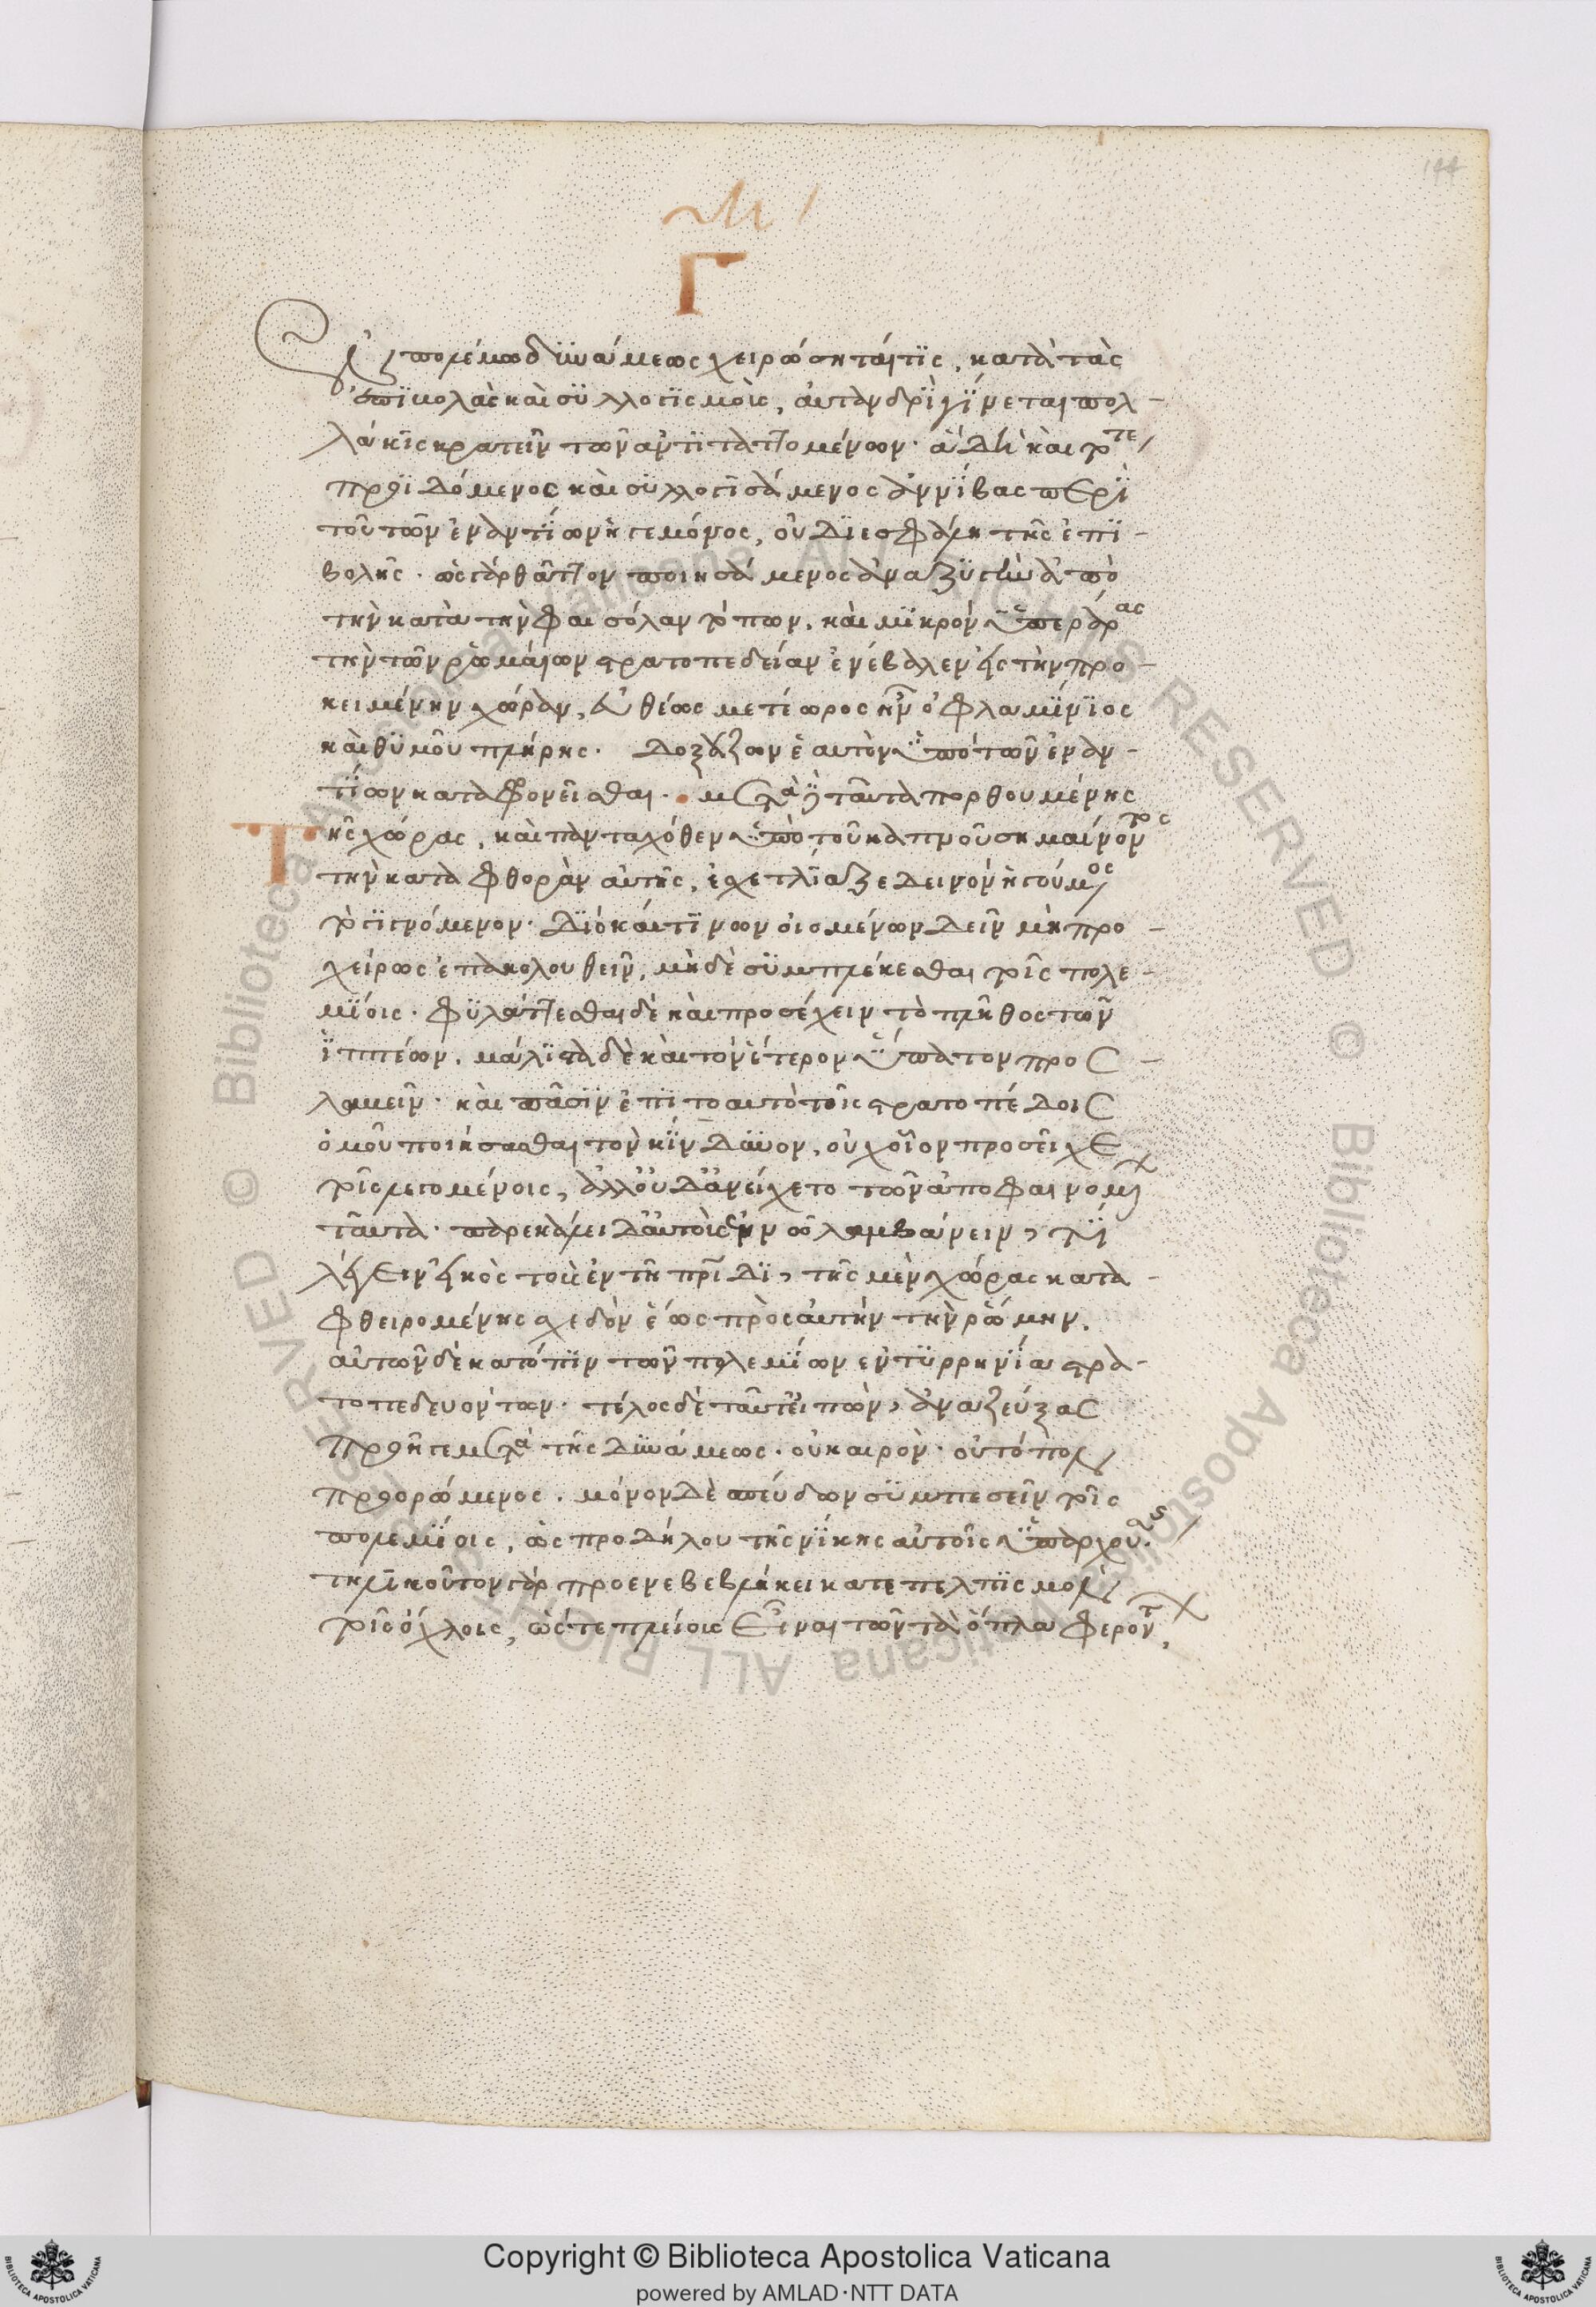 144
Γ
πολεμίων δυνάμεως χειρώσηταί τις, κατὰ τὰς
ἐπιβολὰς καὶ συλλογισμοὺς, αὐτανδρὶ γίνεται πολ-
λάκις κρατεῖν τῶν ἀντιταττομένων· ἃ δὴ καὶ τότε
προϊδόμενος καὶ συλλογισάμενος ἀννίβας περὶ
τοῦ τῶν ἐναντίων ἡγεμόνος, οὐ διεσφάλη τῆς ἐπι-
βολῆς· ὡς γὰρ θᾶττον ποιησάμενος ἀναζυγὴν ἀπὸ
τῶν κατὰ τὴν φαισόλαν τόπων, καὶ μικρὸν ὑπεράρας
τὴν τῶν ῥωμαίων στρατοπεδείαν ἐνέβαλεν εἰς τὴν προ-
κειμένην χώραν, εὐθέως μετέωρος ἦν ὁ φλαμίνιος
καὶ θυμοῦ πλήρης· δοξάζων ἑαυτὸν ὑπὸ τῶν ἐναν-
τίων καταφρονεῖσθαι· μετὰ δὲ ταῦτα πορθουμένης
τῆς χώρας, καὶ πανταχόθεν ὑπὸ τοῦ καπνοῦ σημαίνοντος
τὴν καταφθορὰν αὐτῆς, ἐσχετλίαζε δεινὸν ἡγούμενος
τὸ γιγνόμενον· διὸ καί τινων οἰομένων δεῖν μὴ προ-
χείρως ἐπακολουθεῖν, μηδὲ συμπλέκεσθαι τοῖς πολε-
μίοις· φυλάττεσθαι δὲ καὶ προσέχειν τὸ πλῆθος τῶν
ἱππέων, μάλιστα δὲ καὶ τὸν ἕτερον ὕπατον προσ-
λαβεῖν· καὶ πᾶσιν ἐπὶ τὸ αὐτὸ τοῖς στρατοπέδοις
ὁμοῦ ποιήσασθαι τὸν κίνδυνον, οὐχ οἷον προσεῖχε
τοῖς λεγομένοις, ἀλλ' οὐδ' ἀνείχετο τῶν ἀποφαινομένων
ταῦτα· παρεκάλει δ' αὐτοὺς ἐν νῷ λαμβάνειν, τί
λέγειν εἰκὸς τοὺς ἐν τῇ πατρίδι, τῆς μὲν χώρας κατα-
φθειρομένης σχεδὸν ἕως πρὸς αὐτὴν τὴν ῥώμην,
αὐτῶν δὲ κατόπιν τῶν πολεμίων ἐν τυρρηνίᾳ στρα-
τοπεδευόντων· τέλος δὲ ταῦτ' εἰπὼν, ἀναζεύξας
προῆγε μετὰ τῆς δυνάμεως· οὐ καιρὸν· οὐ τόπον
προορώμενος· μόνον δὲ σπεύδων συμπεσεῖν τοῖς
πολεμίοις, ὡς προδήλου τῆς νίκης αὐτοῖς ὑπαρχούσης·
τηλικοῦτον γὰρ προενεβεβλήκει κατελπισμὸν
τοῖς ὄχλοις, ὥστε πλείους εἶναι τῶν τὰ ὅπλα φερόντων,
Copyright © Biblioteca Apostolica Vaticana
powered by AMLAD·NTT DATA